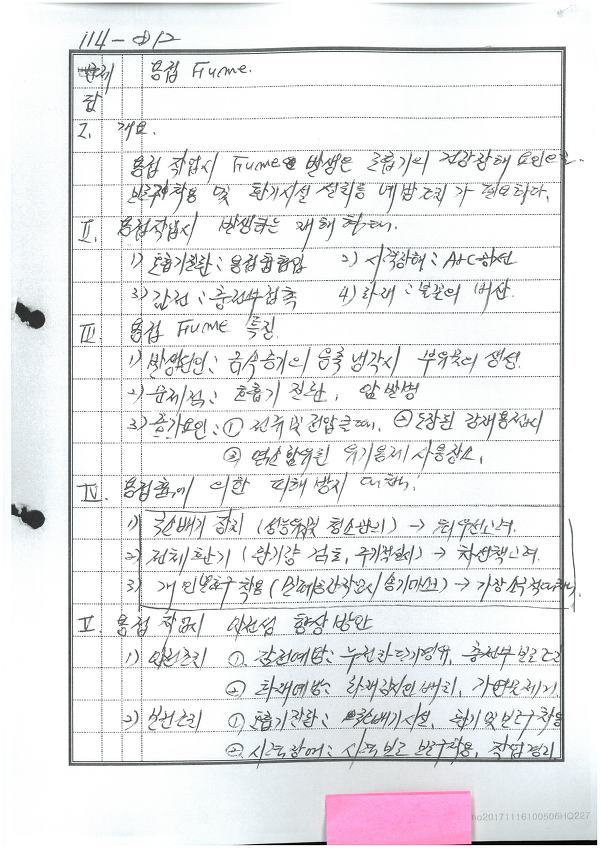 114-012
문제 용접 Fume.
답
I. 개요.
용접 작업시 Fume의 발생은 호흡기의 건강장해 요인으로
보호구착용 및 환기시설 설치등 예방조치가 필요하다.
II. 용접작업시 발생하는 재해형태.
1) 호흡기질환 : 용접흄흡입 2) 시각장해 : Arc광선
3) 감전 : 충전부접촉 4) 화재 : 불꽃의 비산.
III. 용접 Fume 특징
1) 발생원인 : 금속증기의 응축 냉각시 부유물이 생성.
2) 문제점 : 호흡기 질환, 암 발병
3) 증가요인 : ① 전류 및 전압클때. ② 도장된 강재용접시
③ 염소함유된 유기용제 사용장소.
IV. 용접흄에 의한 피해 방지 대책.
1) 국소배기 장치 (성능유지 및 청소관리) → 최우선고려.
2) 전체환기 (환기량 검토, 주기적실시) → 차선책고려.
3) 개인보호구 착용 (밀폐공간작업시 송기마스크) → 가장소극적대책
V. 용접 작업시 안전성 향상방안
1) 안전조치 ① 감전예방 : 누전차단기경유, 충전부보호조치
② 화재예방 : 화재감시인 배치, 가연물제거.
2) 보건조치 ① 호흡기질환 : 국소배기시설, 환기및보호구착용
② 시력장애 : 시력보호 보호구착용, 작업관리.
na20171116100506HQ227